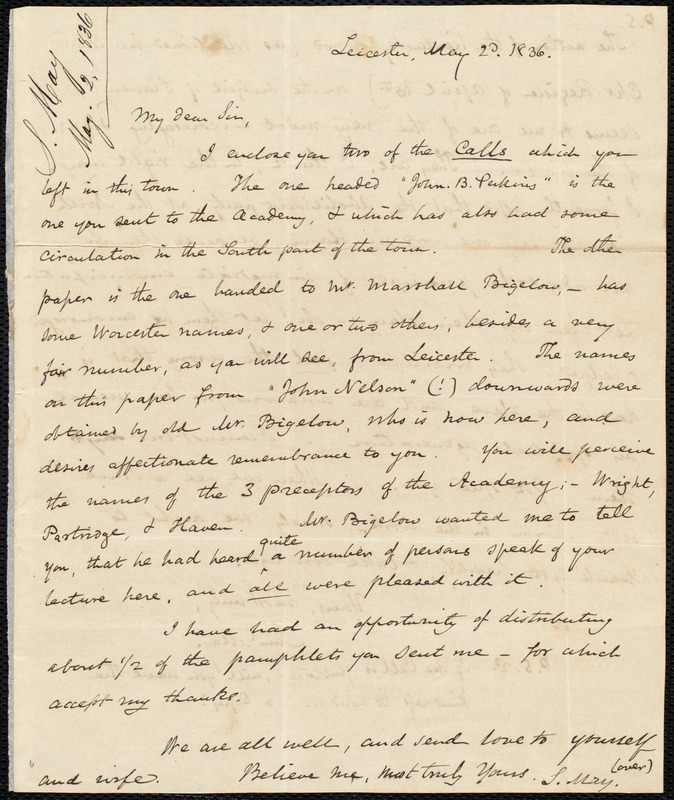 S. May
May. 2, 1836
Leicester, May 2d. 1836.
My dear Sir,
I enclose you two of the Calls which you
left in this town. The one headed "John. B. Perkins" is the
one you sent to the Academy, & which has also had some
circulation in the South part of the town. The other
paper is the one handed to Mr. Marshall Bigelow, – has
some Worcester names, & one or two others, besides a very
fair number, as you will see, from Leicester. The names
on this paper from "John Nelson" (!) downwards were
obtained by old Mr. Bigelow, who is now here, and
desires affectionate remembrance to you. You will perceive
the names of the 3 preceptors of the Academy; – Wright,
Partridge, & Haven. Mr. Bigelow wanted me to tell
you, that he had heard quite a number of persons speak of your
lecture here, and all were pleased with it.
I have had an opportunity of distributing
about 1/2 of the pamphlets you sent me – for which
accept my thanks.
We are all well, and send love to yourself
and wife. Believe me, most truly Yours. S. May.
(over)